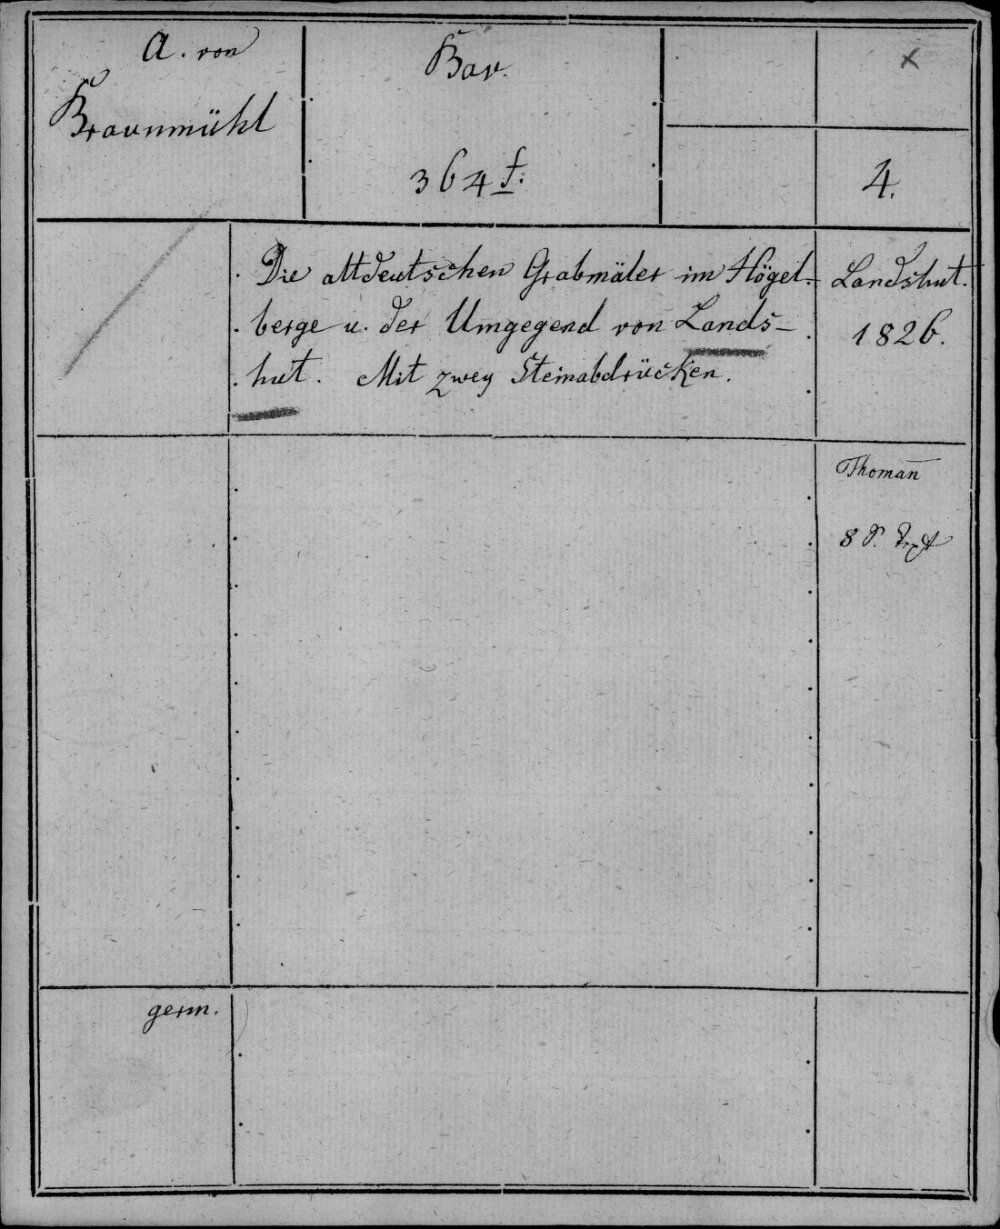 A. von
Braunmühl
Bav.
364 f.
x
4.
Die altdeutschen Grabmäler im Högel-
berge u. der Umgegend von Lands-
hut. Mit zwey Steinabdrücken.
Landshut.
1826.
Thomañ
8 S.
germ.